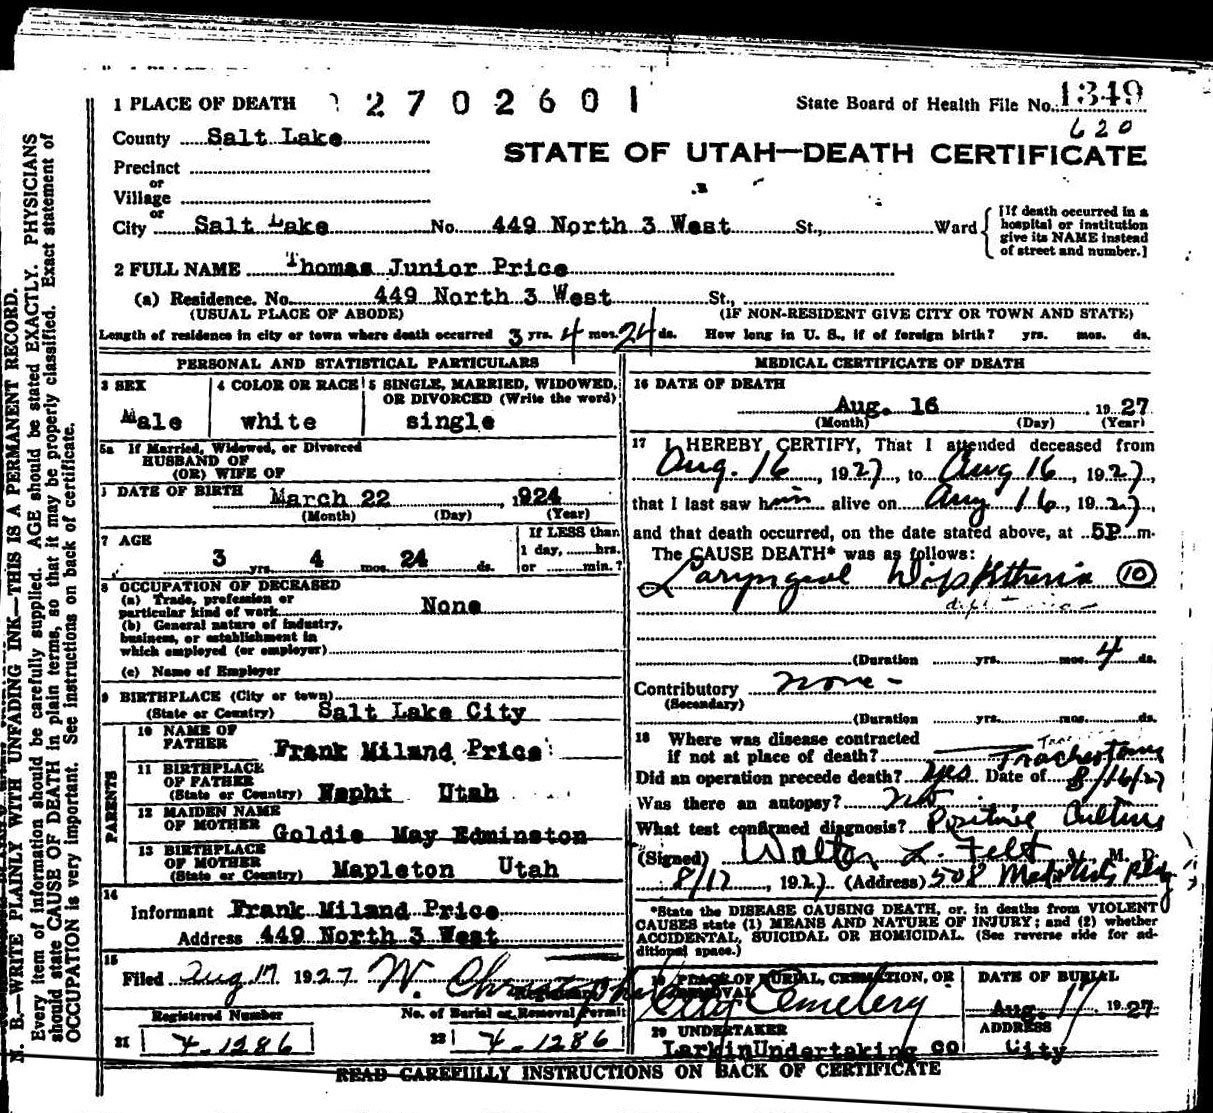 1 PLACE OF DEATH 2 7 0 2 6 0 1 State Board of Health File No. 1349
620
County Salt Lake
STATE OF UTAH—DEATH CERTIFICATE
Precinct
or
Village
or
City Salt Lake No. 449 North 3 West St., Ward
[If death occurred in a
hospital or institution
give its NAME instead
of street and number.]
2 FULL NAME Thomas Junior Price
(a) Residence. No. 449 North 3 West St.,
(USUAL PLACE OF ABODE) (IF NON-RESIDENT GIVE CITY OR TOWN AND STATE)
Length of residence in city or town where death occurred 3 yrs. 4 mos. 24 ds. How long in U. S., if of foreign birth? yrs. mos. ds.
PERSONAL AND STATISTICAL PARTICULARS
3 SEX
Male
4 COLOR OR RACE
white
5 SINGLE, MARRIED, WIDOWED,
OR DIVORCED (Write the word)
single
5a If Married, Widowed, or Divorced
HUSBAND OF
(OR) WIFE OF
DATE OF BIRTH March 22, 1924
(Month) (Day) (Year)
7 AGE
3 yrs. 4 mos. 24 ds.
If LESS than
1 day, hrs.
or min.?
8 OCCUPATION OF DECEASED
(a) Trade, profession or
particular kind of work None
(b) General nature of industry,
business, or establishment in
which employed (or employer)
(c) Name of Employer
9 BIRTHPLACE (City or town)
(State or Country) Salt Lake City
PARENTS
10 NAME OF
FATHER Frank Miland Price
11 BIRTHPLACE
OF FATHER
(State or Country) Nephi Utah
12 MAIDEN NAME
OF MOTHER Goldie May Edminston
13 BIRTHPLACE
OF MOTHER
(State or Country) Mapleton Utah
14
Informant Frank Miland Price
Address 449 North 3 West
15
Filed Aug 17 1927 W.
No. of Burial or Removal Permit
Registered Number
21 4-1286 22 4-1286
MEDICAL CERTIFICATE OF DEATH
16 DATE OF DEATH
Aug. 16 1927
(Month) (Day) (Year)
17 I HEREBY CERTIFY, That I attended deceased from
Aug. 16, 1927, to Aug 16, 1927,
that I last saw him alive on Aug 16, 1927,
and that death occurred, on the date stated above, at 5P m.
The CAUSE DEATH* was as follows:
Laryngeal Diphtheria 10
(Duration yrs. mos. 4 ds.
Contributory none -
(Secondary)
(Duration yrs. mos. ds.
18 Where was disease contracted
if not at place of death?
Tracheotomy
Did an operation precede death? Yes Date of 8/16/27
Was there an autopsy? no
What test confirmed diagnosis? Positive Culture
(Signed) Walter L. Felt, M. D.
8/17, 1927 (Address) 508
*State the DISEASE CAUSING DEATH, or, in deaths from VIOLENT
CAUSES state (1) MEANS AND NATURE OF INJURY; and (2) whether
ACCIDENTAL, SUICIDAL OR HOMICIDAL. (See reverse side for ad-
ditional space.)
PLACE OF BURIAL, CREMATION, OR
REMOVAL
City Cemetery
DATE OF BURIAL
Aug. 17 1927
20 UNDERTAKER
Larkin Undertaking co
ADDRESS
City
READ CAREFULLY INSTRUCTIONS ON BACK OF CERTIFICATE
N. B.—WRITE PLAINLY WITH UNFADING INK—THIS IS A PERMANENT RECORD.
Every item of information should be carefully supplied. AGE should be stated EXACTLY. PHYSICIANS
should state CAUSE OF DEATH in plain terms, so that it may be properly classified. Exact statement of
OCCUPATION is very important. See instructions on back of certificate.